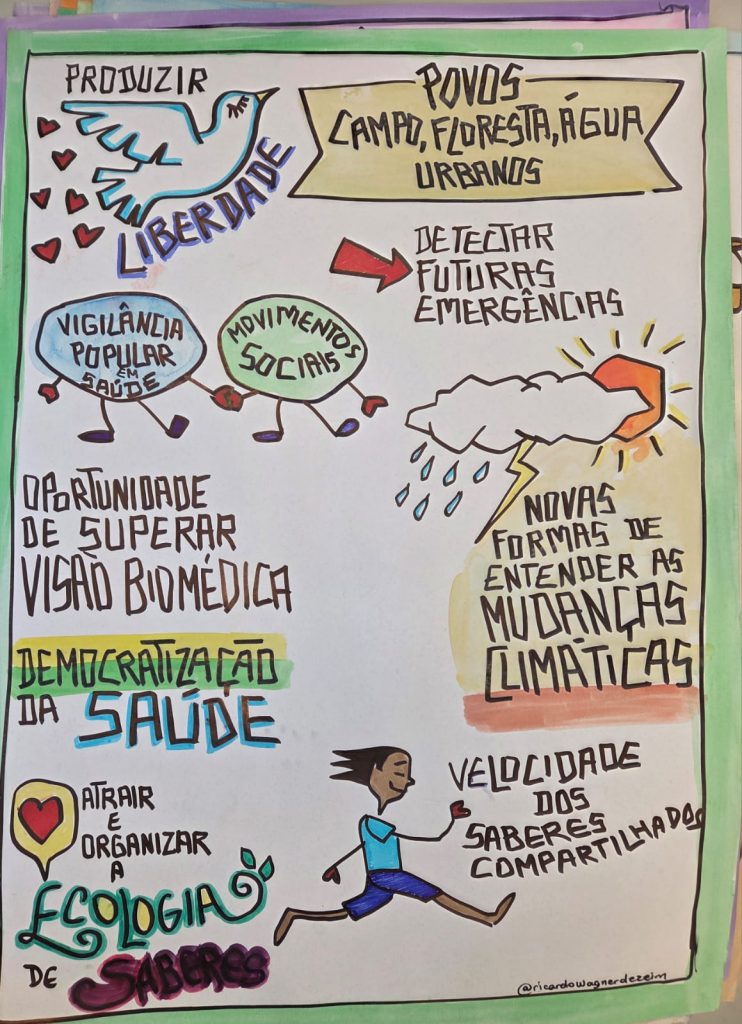 PRODUZIR
LIBERDADE
POVOS
CAMPO, FLORESTA, ÁGUA
URBANOS
DETECTAR
FUTURAS
EMERGÊNCIAS
VIGILÂNCIA
POPULAR
EM
SAÚDE
MOVIMENTOS
SOCIAIS
OPORTUNIDADE
DE SUPERAR
VISÃO BIOMÉDICA
NOVAS
FORMAS DE
ENTENDER AS
MUDANÇAS
CLIMÁTICAS
DEMOCRATIZAÇÃO
DA SAÚDE
VELOCIDADE
DOS
SABERES
COMPARTILHADOS
ATRAIR
E
ORGANIZAR
A
ECOLOGIA
DE SABERES
@ricardowagnerdezeim